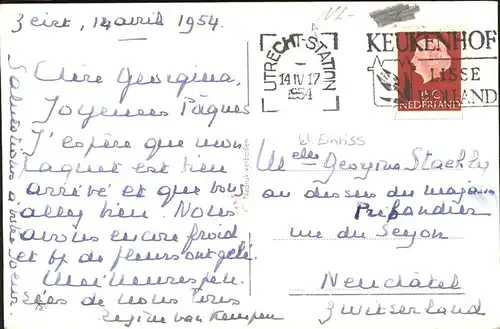 Zeist, 14 avril 1954.
Chère Georgina,
Joyeuses Pâques
J'espère que mon
paquet est bien
arrivé et que vous
allez bien. Nous
avons encore froid
et bp de fleurs ont gelé.
Meilleures pen-
sées de nous tous
Régine van Kempen
Salutations à votre soeur
Nadruk verboden
N2-
UTRECHT-STATION
14 IV 17
1954
KEUKENHOF
LISSE
HOLLAND
NEDERLAND
kl. Einriss
Melle Georgina Staehly
au dessus du magasin
Préfandier
rue du Seyon
Neuchâtel
Zwitserland